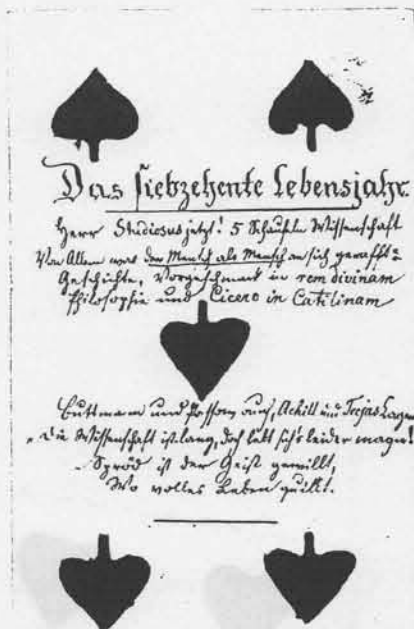 Das siebzehente Lebensjahr.
Herr Studiosus jetzt! 5 Schaufeln Wissenschaft
Von Allem was der Mensch als Mensch an sich gerafft:
Geschichte, Vorgeschmack in rem divinam
Philosophie und Cicero in Catilinam
Buttmann und auch, Achill und Trojas Lager
„Die Wissenschaft ist lang, doch lebt sich's leider mager!
Spröd ist der Geist gewillt,
Wo volles Leben quillt.